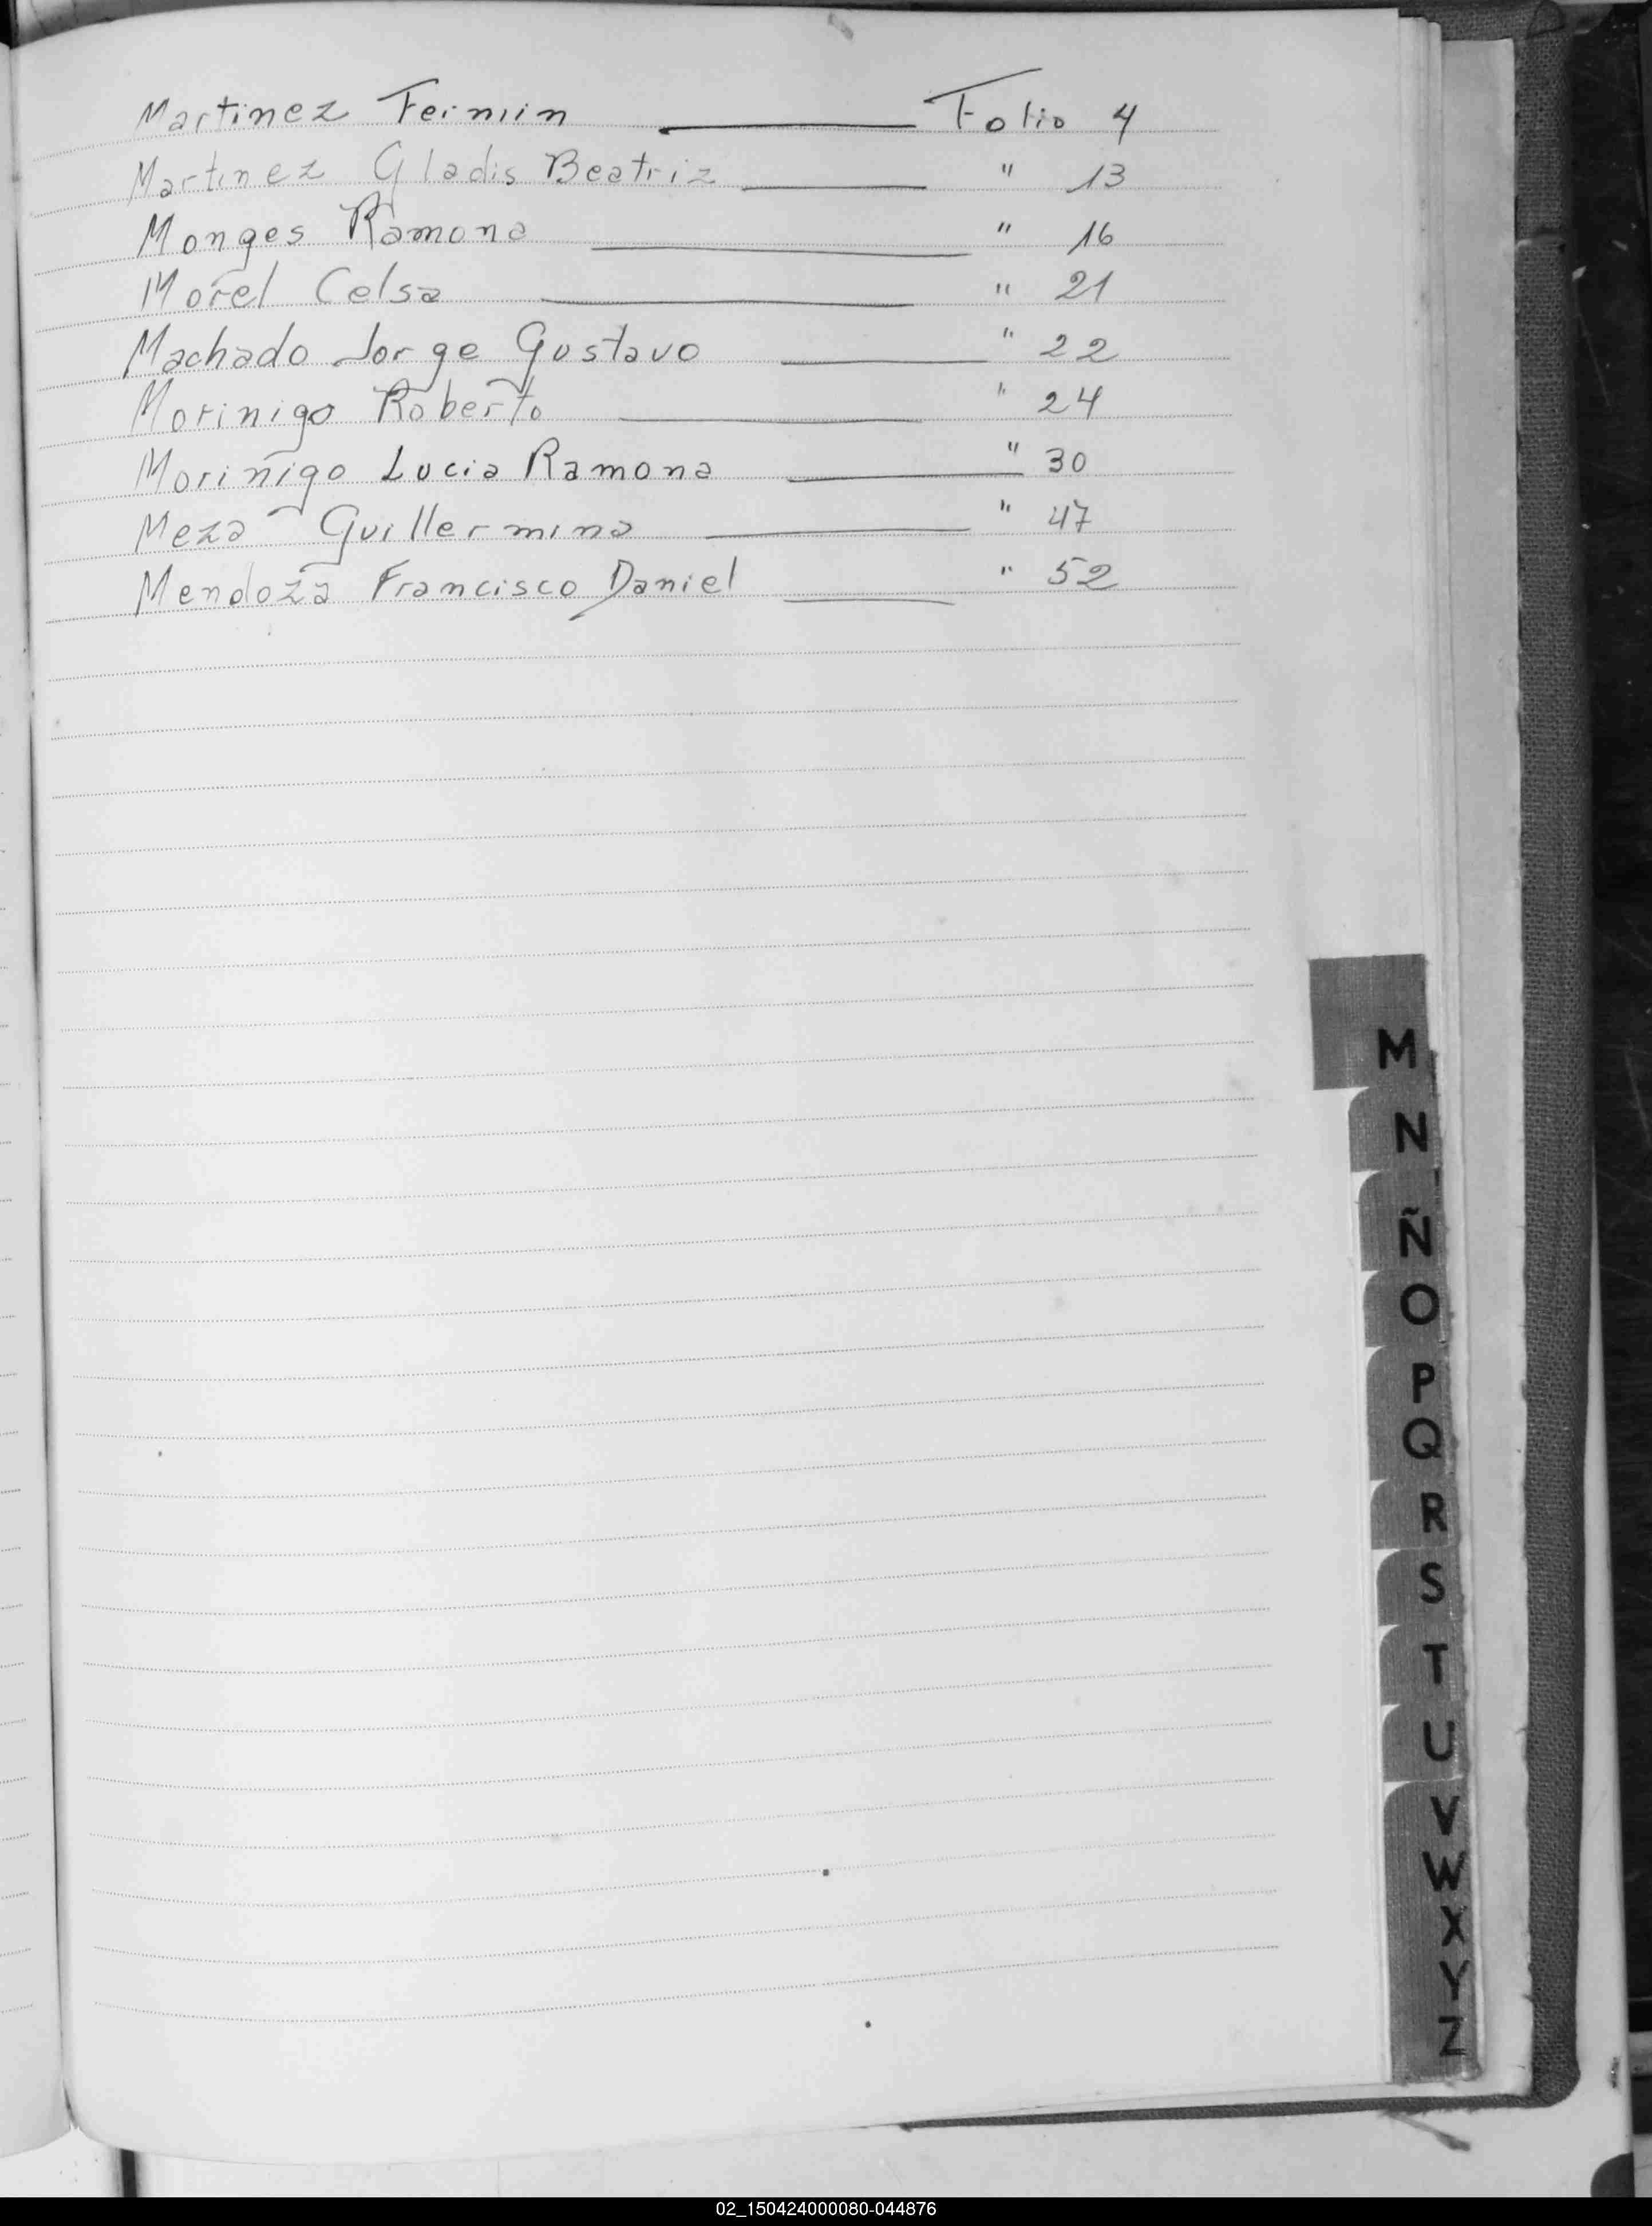 Martinez Fermin Folio 4
Martinez Gladis Beatriz " 13
Monges Ramona " 16
Morel Celsa " 21
Machado Jorge Gustavo " 22
Morinigo Roberto " 24
Morinigo Lucia Ramona " 30
Meza Guillermina " 47
Mendoza Francisco Daniel " 52
M
N
Ñ
O
P
Q
R
S
T
U
V
W
X
Y
Z
02_150424000080-044876